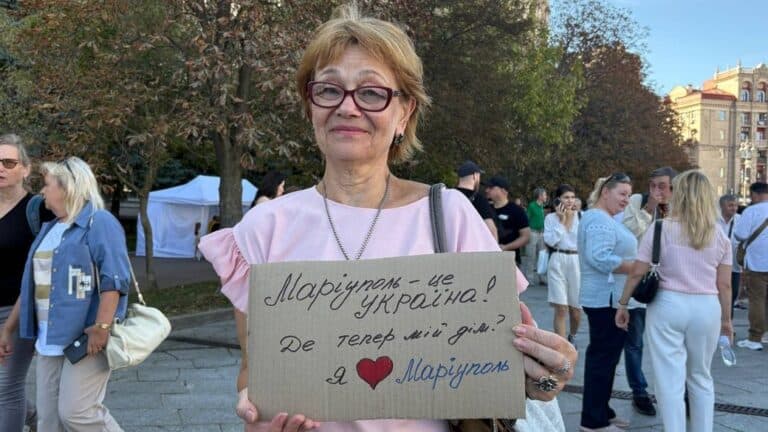 Маріуполь - це
україна!
Де тепер мій дім?
Я ❤ Маріуполь